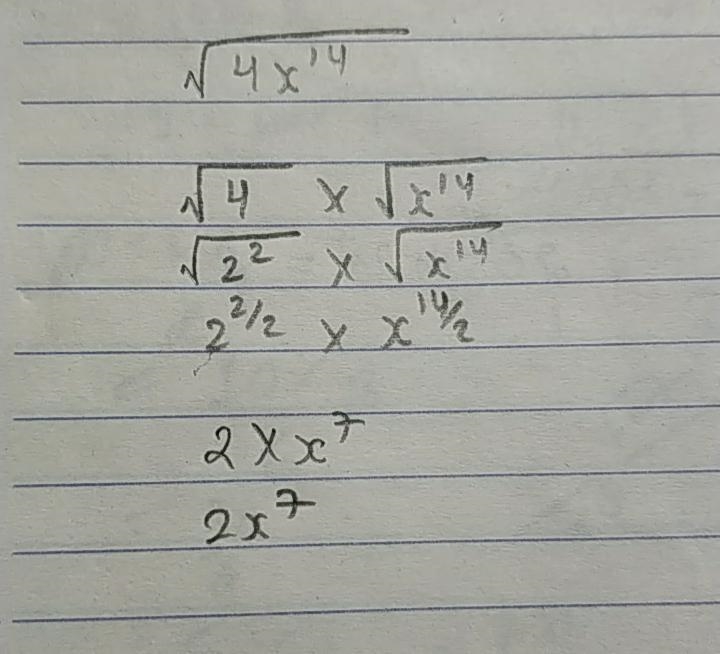 √4x¹⁴
√4 × √x¹⁴
√2² × √x¹⁴
2^2/2 × x^14/2
2 × x⁷
2x⁷